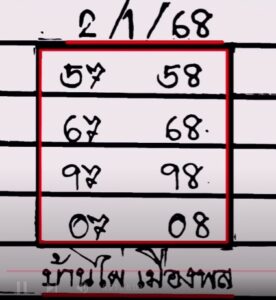 2/1/68
57 58
67 68.
97 98
07 08
บ้านไผ่ เมืองพล